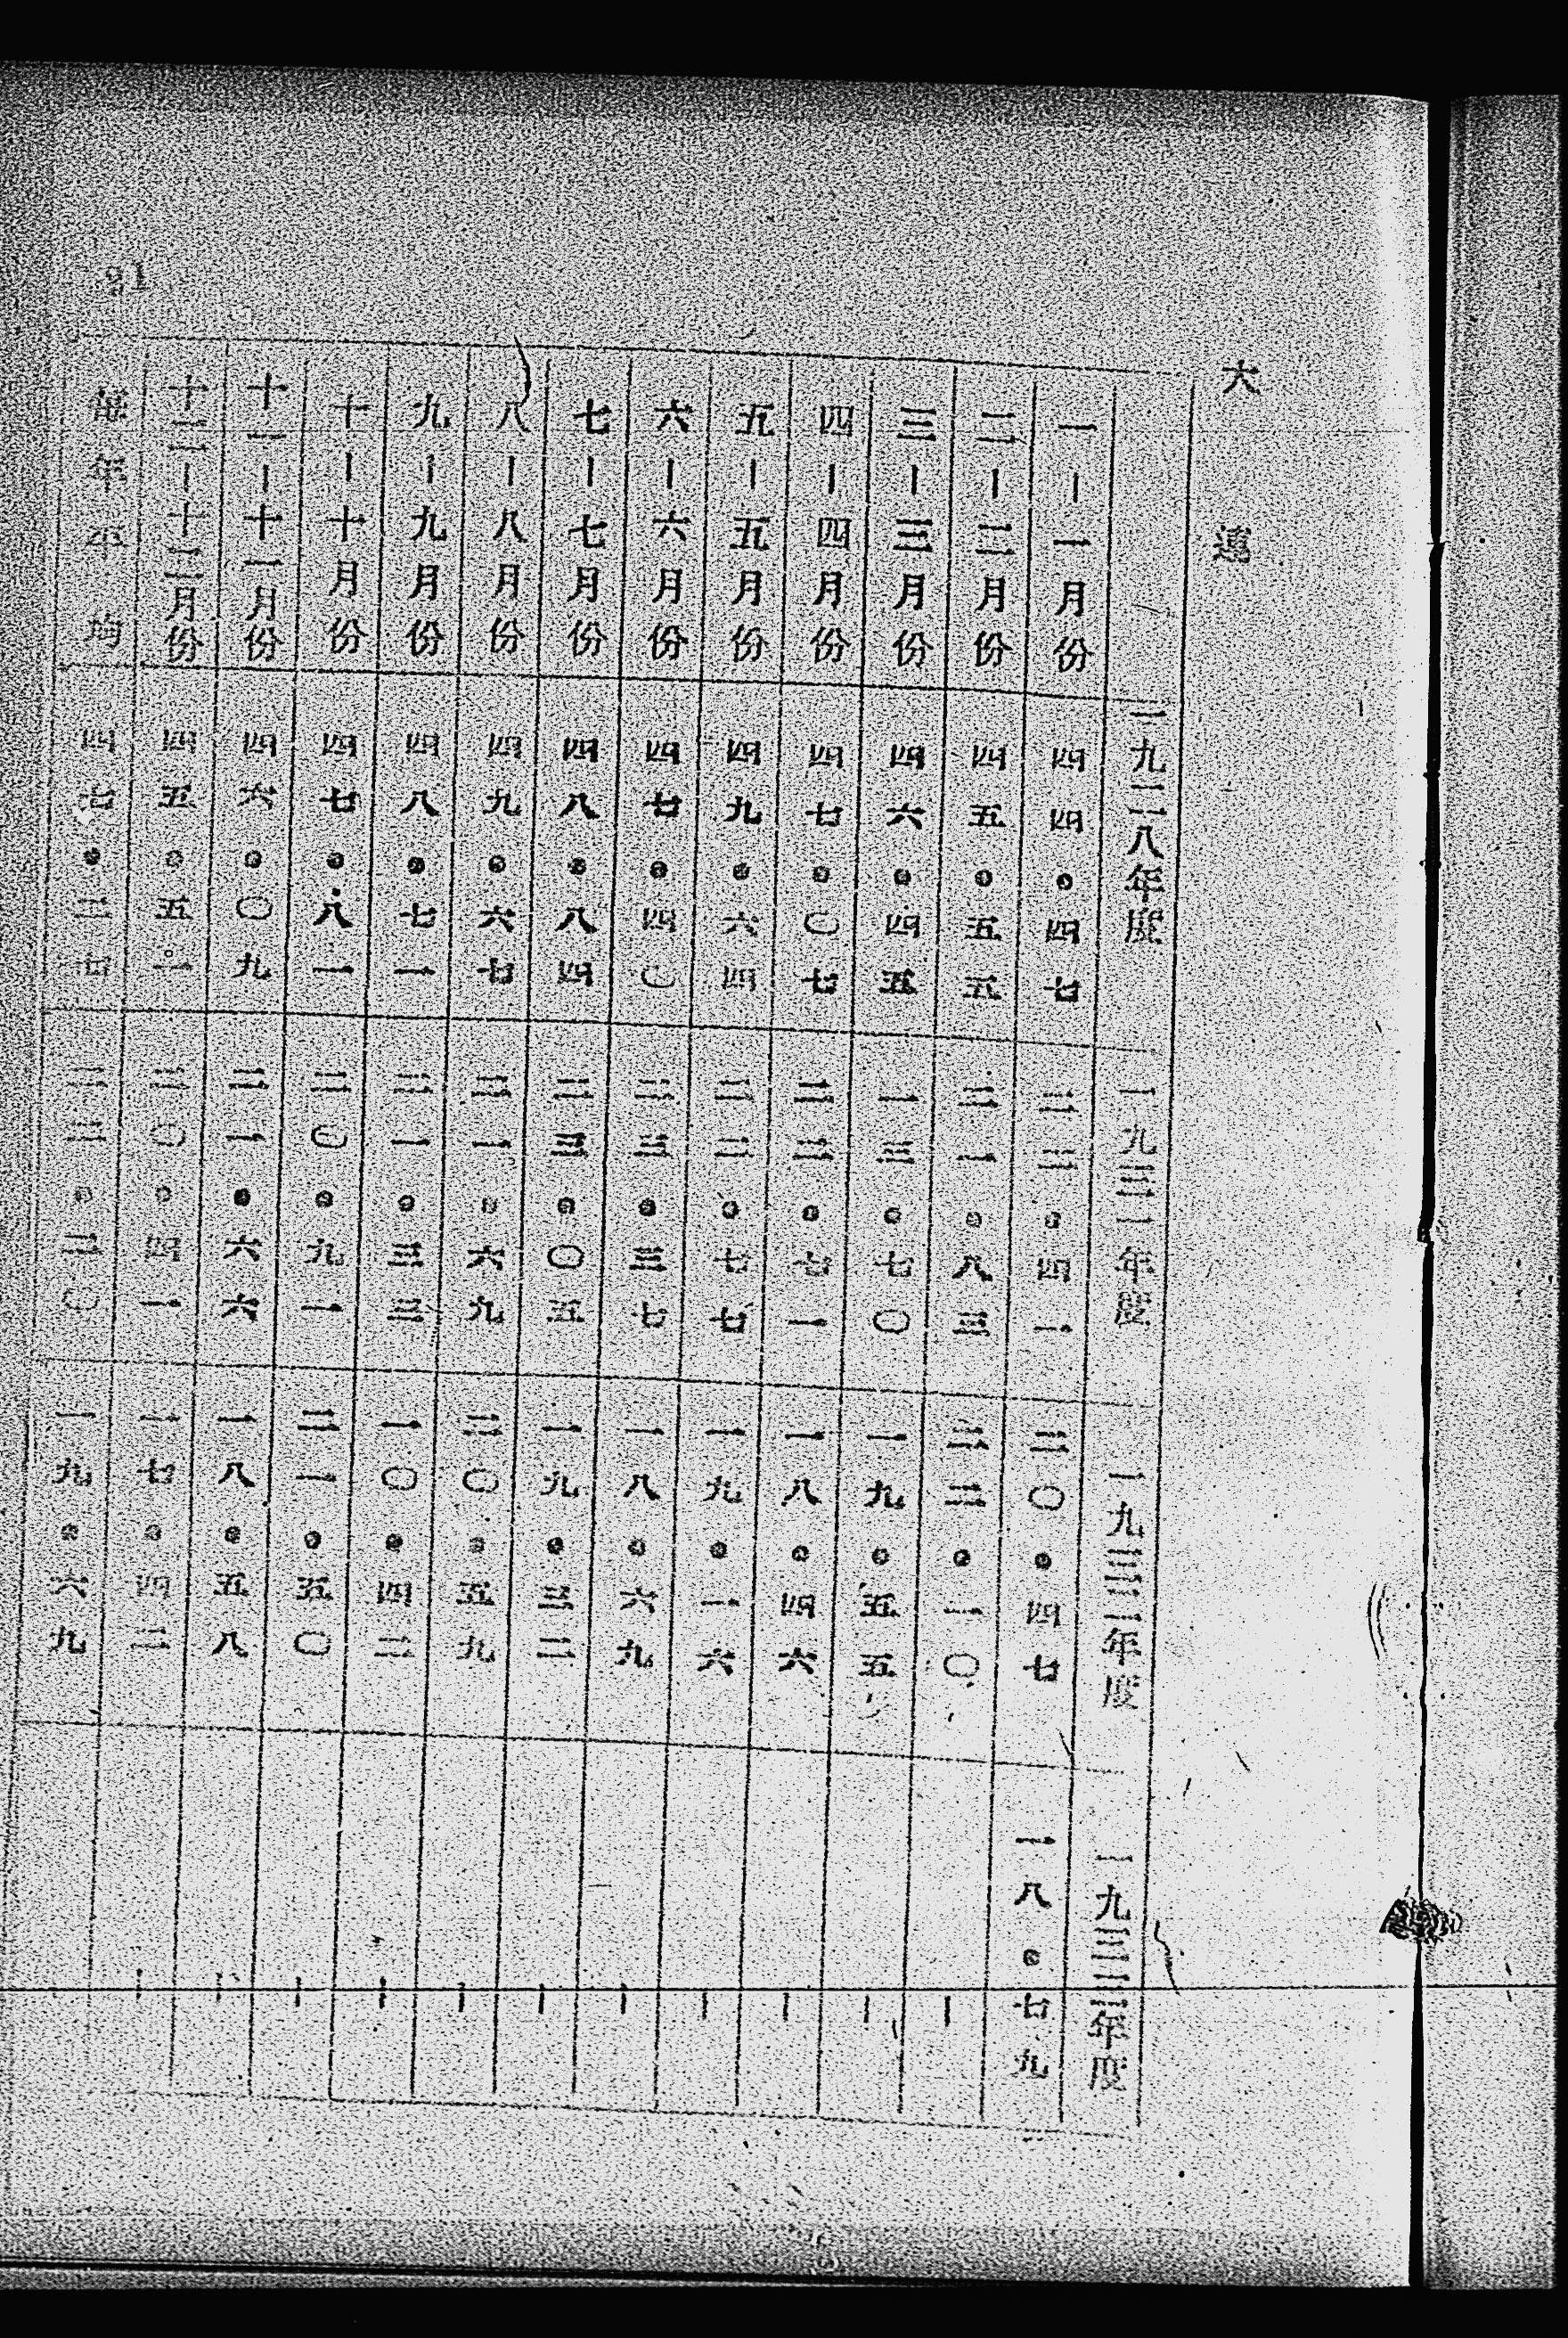 大連
一九二八年度 一九三一年度 一九三二年度 一九三三年度
一－一月份 四四•四七 二二•四一 二〇•四七 一八•七九
二－二月份 四五•五五 二一•八三 二二•一〇 －
三－三月份 四六•四五 一三•七〇 一九•五五 －
四－四月份 四七•〇七 二二•七一 一八•四六 －
五－五月份 四九•六四 二二•七七 一九•一六 －
六－六月份 四七•四〇 二三•三七 一八•六九 －
七－七月份 四八•八四 二三•〇五 一九•三二 －
八－八月份 四九•六七 二一•六九 二〇•五九 －
九－九月份 四八•七一 二一•三三 一〇•四二 －
十－十月份 四七•八一 二〇•九一 二一•五〇 －
十一－十一月份 四六•〇九 二一•六六 一八•五八 －
十二－十二月份 四五•五一 二〇•四一 一七•四二 －
年平均 四七•二四 二二•二〇 一九•六九